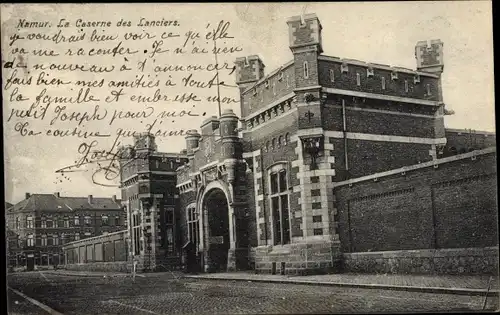 Namur. La Caserne des Lanciers.
Je voudrais bien voir ce qu'elle
va me raconter. Je n'ai rien
de nouveau à t'annoncer
fais bien mes amitiés à toute
la famille et embrasse mon
petit Joseph pour moi
Ta cousine qui t'aime